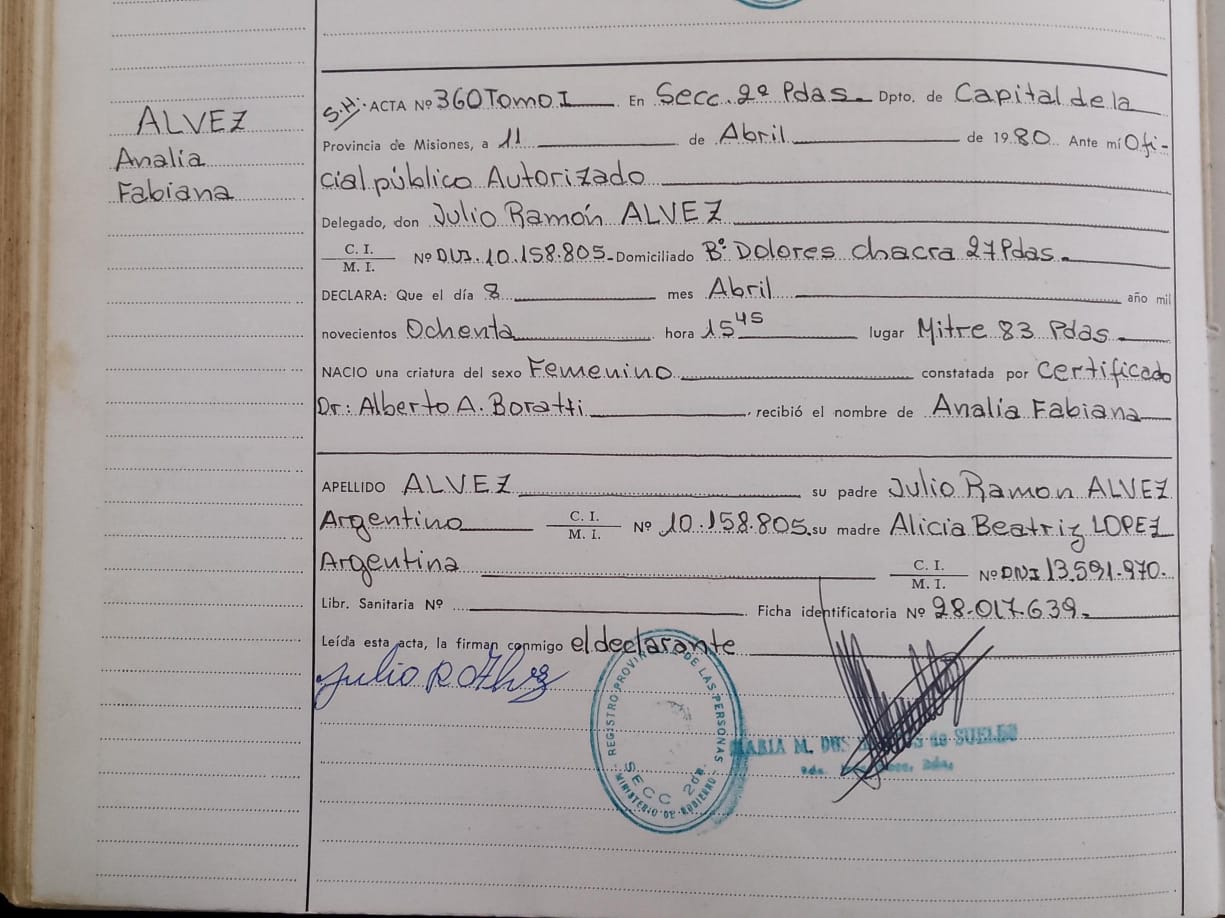 ALVEZ
Analía
Fabiana
S.H. ACTA Nº 360 Tomo I En Secc. 2º Pdas. Dpto. de Capital de la
Provincia de Misiones, a 11 de Abril de 1980 Ante mí Ofi-
cial público Autorizado
Delegado, don Julio Ramón ALVEZ
C. I.
M. I. Nº DNI. 10.158.805 Domiciliado Bº Dolores chacra 27 Pdas.
DECLARA: Que el día 8 mes Abril año mil
novecientos Ochenta hora 15 45 lugar Mitre 83 Pdas.
NACIO una criatura del sexo Femenino constatada por Certificado
Dr: Alberto A. Boratti, recibió el nombre de Analía Fabiana
APELLIDO ALVEZ su padre Julio Ramon ALVEZ
Argentino C. I.
M. I. Nº 10.158.805. su madre Alicia Beatriz LOPEZ
Argentina C. I.
M. I. Nº DNI 13.591.970.
Libr. Sanitaria Nº Ficha identificatoria Nº 28.017.639.
Leída esta acta, la firman conmigo el declarante
Julio R Alvez
REGISTRO PROVINCIAL DE LAS PERSONAS
SECC 2da.
MINISTERIO DE GOBIERNO
MARIA M. DOS de SUELDO